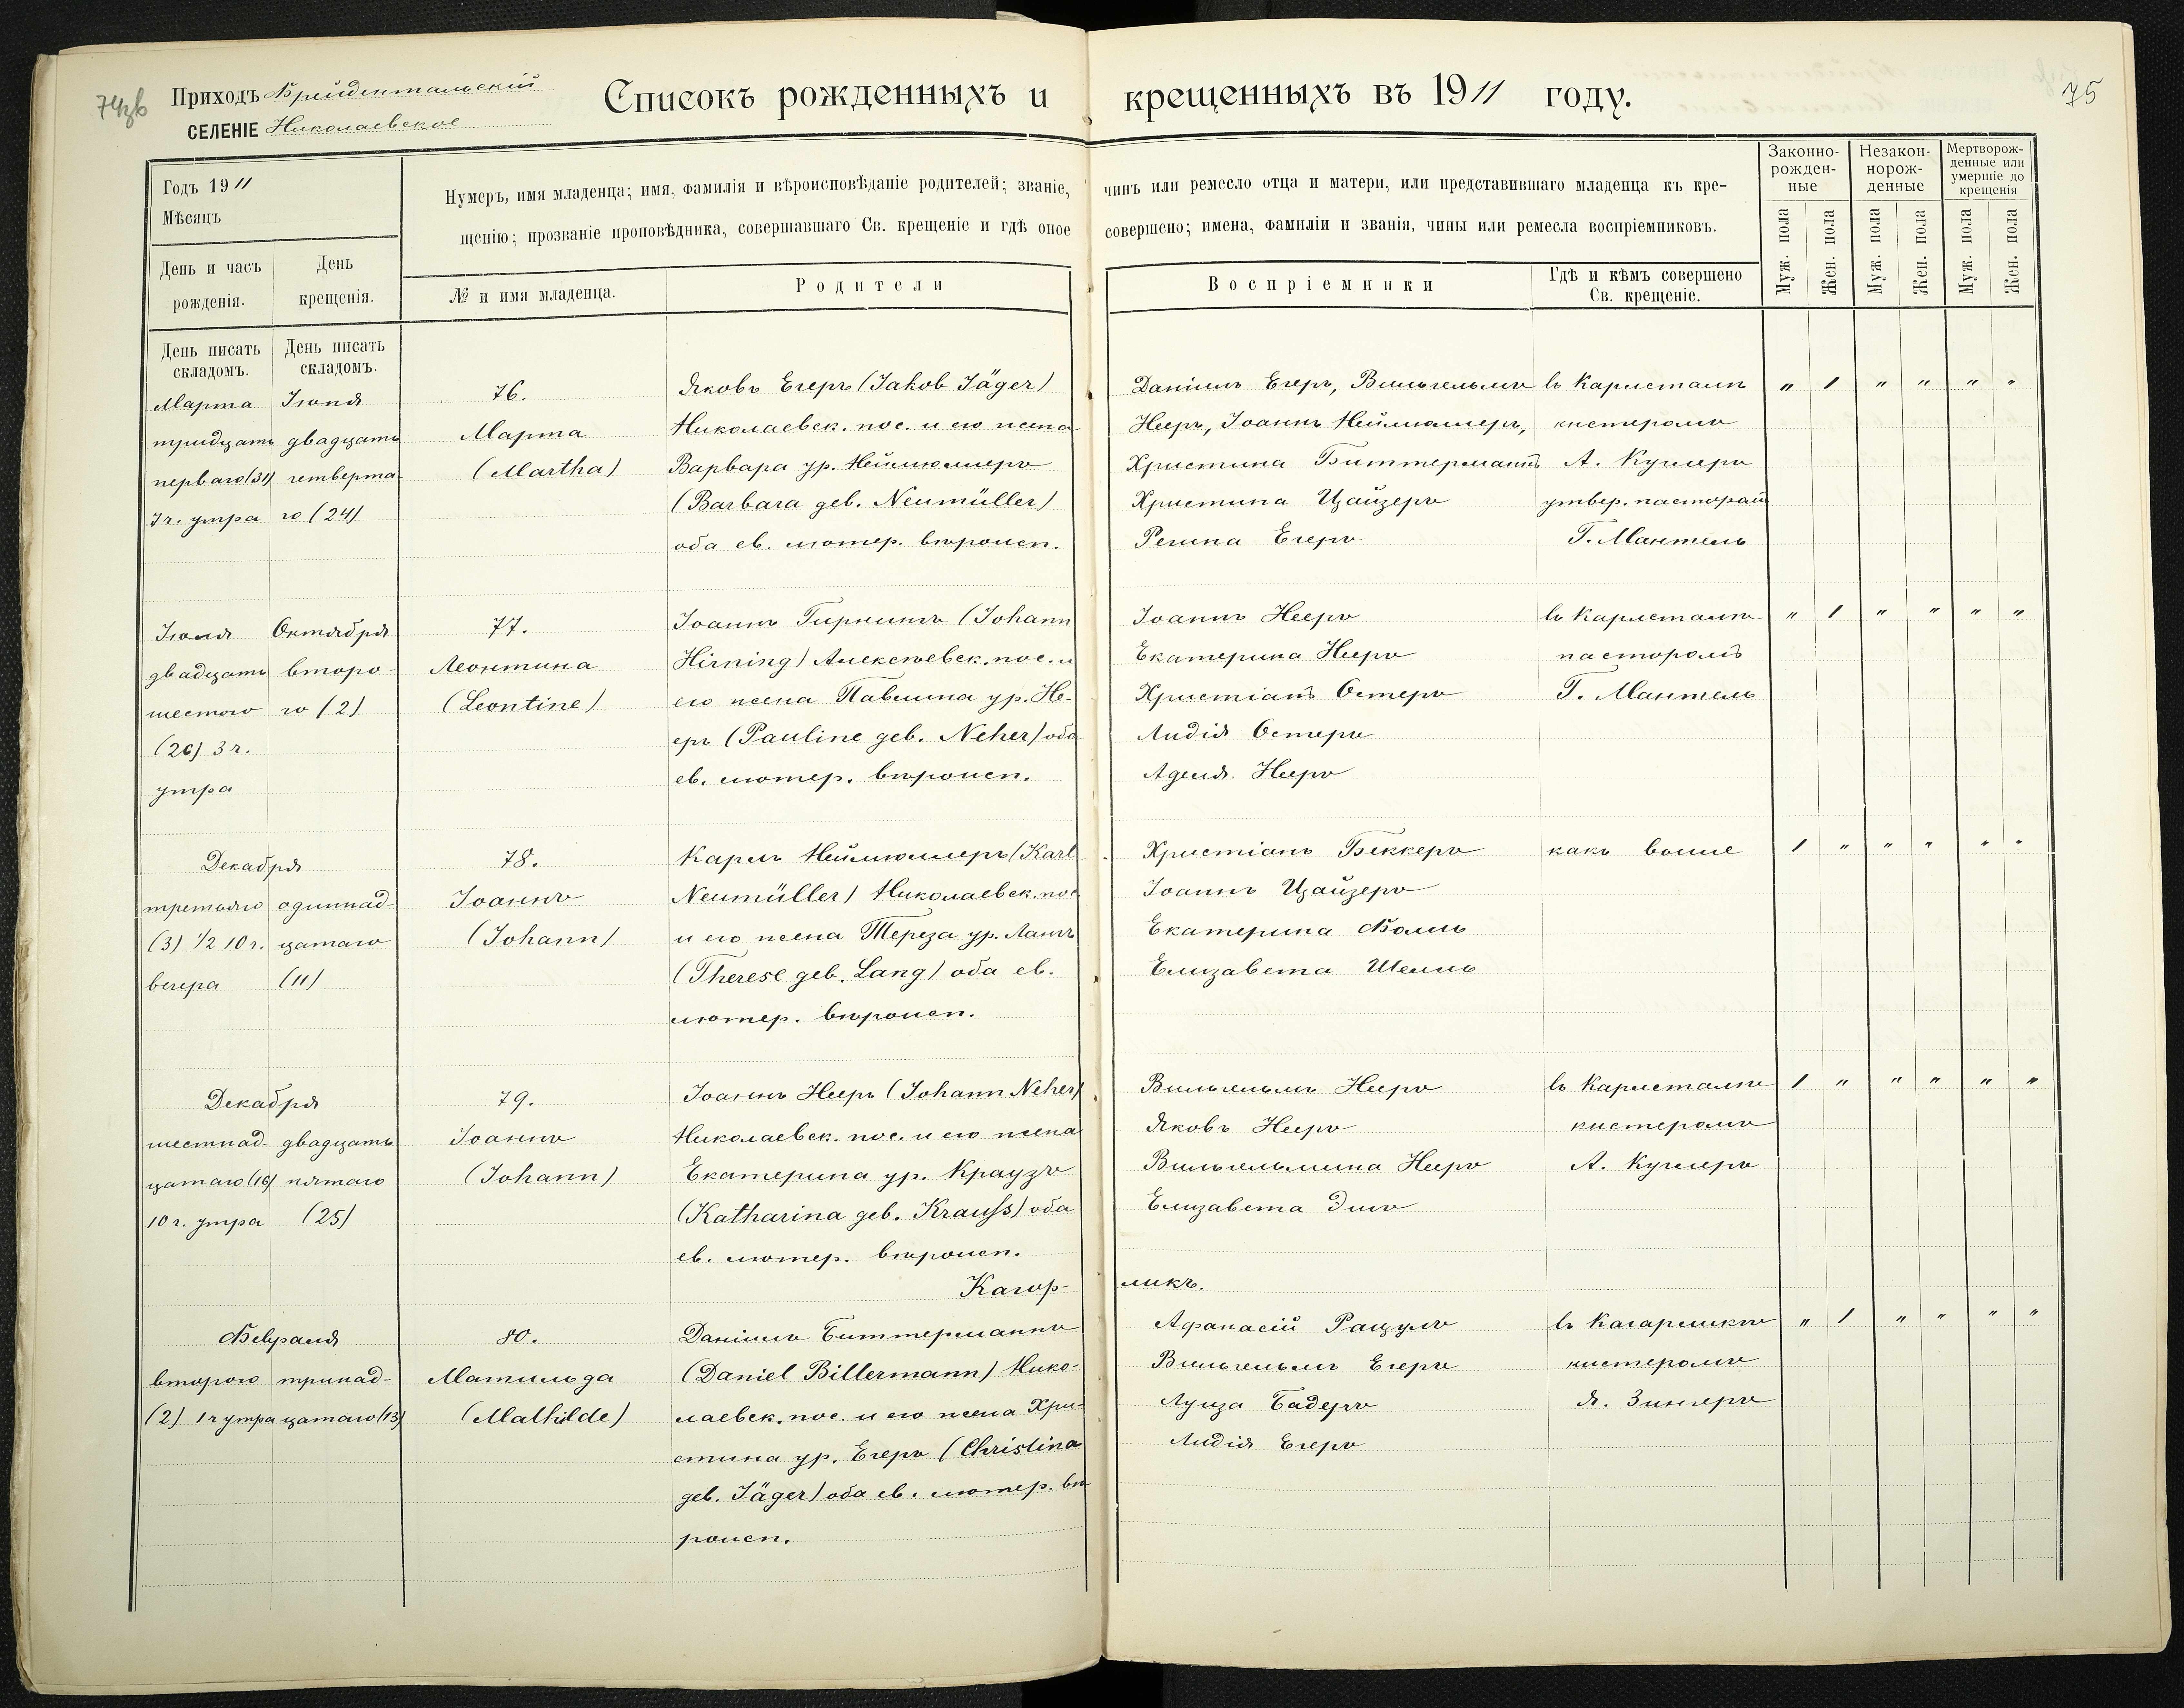 74об
Приходъ Фрейдентальскій
СЕЛЕНІЕ Николаевское
Списокъ рожденныхъ и крещенныхъ въ 1911 году.
75
Годъ 1911
Мѣсяцъ
День и часъ рожденія.
День крещенія.
Нумеръ, имя младенца; имя, фамилія и вѣроисповѣданіе родителей; званіе, чинъ или ремесло отца и матери, или представившаго младенца къ кре-
щенію; прозваніе проповѣдника, совершавшаго Св. крещеніе и гдѣ оное совершено; имена, фамиліи и званія, чины или ремесла воспріемниковъ.
№ и имя младенца.
Родители
Воспріемники
Гдѣ и кѣмъ совершено
Св. крещеніе.
Законно-
рожден-
ные
Незакон-
норож-
денные
Мертворож-
денные или
умершіе до
крещенія
Муж. пола
Жен. пола
Муж. пола
Жен. пола
Муж. пола
Жен. пола
День писать
складомъ.
День писать
складомъ.
Марта
тридцать
перваго (31)
7 ч. утра
Іюня
двадцать
четверта-
го (24)
76.
Марта
(Martha)
Яковъ Егеръ (Jakob Jäger)
Николаевск. пос. и его жена
Варвара ур. Неймюллеръ
(Barbara geb. Neumüller)
оба ев. лютер. вѣроисп.
Даніилъ Егеръ, Вильгельмъ
Нееръ, Іоаннъ Неймюллеръ,
Христина Биттерманнъ
Христина Цайзеръ
Регина Егеръ
въ Карлсталѣ
кистеромъ
А. Кучлеръ
утвер. пасторомъ
Г. Мантель
" 1 " " " "
Іюля
двадцать
шестого
(26) 3 ч.
утра
Октября
второ-
го (2)
77.
Леонтина
(Leontine)
Іоаннъ Гирнингъ (Johann
Hirning) Алексѣевск. пос. и
его жена Павлина ур. Не-
еръ (Pauline geb. Neher) оба
ев. лютер. вѣроисп.
Іоаннъ Нееръ
Екатерина Нееръ
Христіанъ Остеръ
Лидія Остеръ
Аделя Нееръ
въ Карлсталѣ
пасторомъ
Г. Мантель
" 1 " " " "
Декабря
третьяго
(3) 1/2 10 ч.
вечера
одиннад-
цатаго
(11)
78.
Іоаннъ
(Johann)
Карлъ Неймюллеръ (Karl
Neumüller) Николаевск. пос
и его жена Тереза ур. Лангъ
(Therese geb. Lang) оба ев.
лютер. вѣроисп.
Христіанъ Беккеръ
Іоаннъ Цайзеръ
Екатерина Фолль
Елизавета Шелль
какъ выше
1 " " " " "
Декабря
шестнад-
цатаго (16)
10 ч. утра
двадцать
пятаго
(25)
79.
Іоаннъ
(Johann)
Іоаннъ Нееръ (Johann Neher)
Николаевск. пос. и его жена
Екатерина ур. Краузъ
(Katharina geb. Krauss) оба
ев. лютер. вѣроисп.
Вильгельмъ Нееръ
Яковъ Нееръ
Вильгельмина Нееръ
Елизавета
въ Карлсталѣ
кистеромъ
А. Кучлеръ
1 " " " " "
Кагор-
ликъ.
Февраля
второго
(2) 1 ч утра
тринад-
цатаго (13)
80.
Матильда
(Mathilde)
Даніилъ Биттерманнъ
(Daniel Billermann) Нико-
лаевск. пос. и его жена Хри-
стина ур. Егеръ (Christina
geb. Jäger) оба ев. лютер. вѣ
роисп.
Афанасій Рацулъ
Вильгельмъ Егеръ
Луиза Бадеръ
Лидія Егеръ
въ Кагарликѣ
кистеромъ
Я. Зингеръ
" 1 " " " "